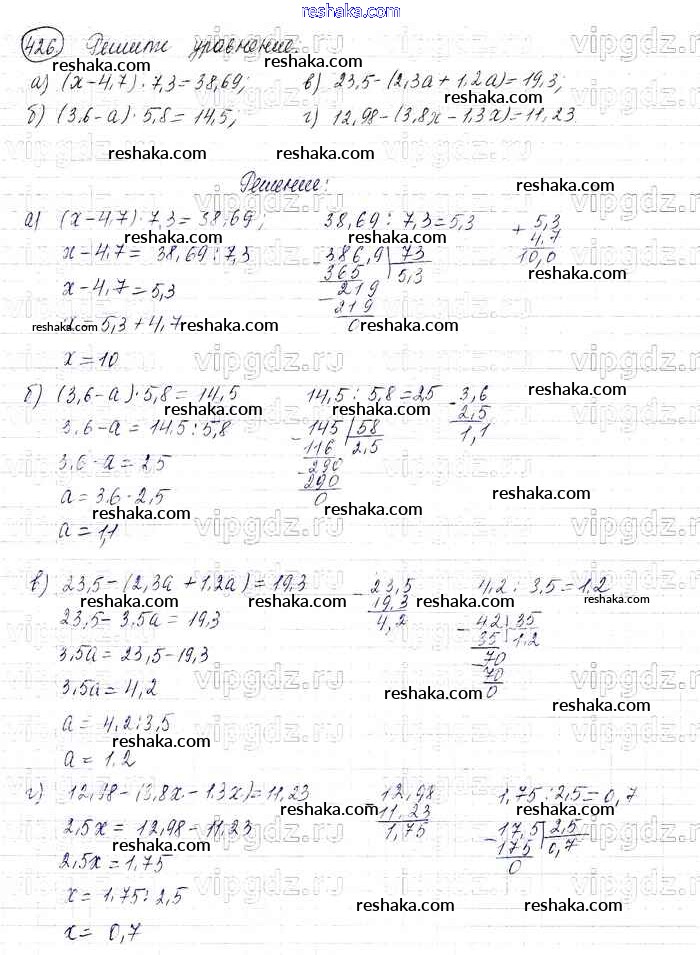 reshaka.com
426. Решите уравнение.
а) (x-4,7)·7,3=38,69; в) 23,5-(2,3a+1,2a)=19,3;
б) (3,6-a)·5,8=14,5; г) 12,98-(3,8x-1,3x)=11,23
Решение:
а) (x-4,7)·7,3=38,69; 38,69:7,3=5,3
x-4,7=38,69:7,3
x-4,7=5,3
x=5,3+4,7
x=10
-386,9|73
365 5,3
-219
219
0
+5,3
4,7
10,0
б) (3,6-a)·5,8=14,5 14,5:5,8=25
3,6-a=14,5:5,8
3,6-a=2,5
a=3,6-2,5
a=1,1
-145|58
116 2,5
-290
290
0
-3,6
2,5
1,1
в) 23,5-(2,3a+1,2a)=19,3 4,2:3,5=1,2
23,5-3,5a=19,3
3,5a=23,5-19,3
3,5a=4,2
a=4,2:3,5
a=1,2
-23,5
19,3
4,2
-42|35
35 1,2
-70
70
0
г) 12,98-(3,8x-1,3x)=11,23 1,75:2,5=0,7
2,5x=12,98-11,23
2,5x=1,75
x=1,75:2,5
x=0,7
-12,98
11,23
1,75
-17,5|2,5
175 0,7
0
vipgdz.ru
reshaka.com